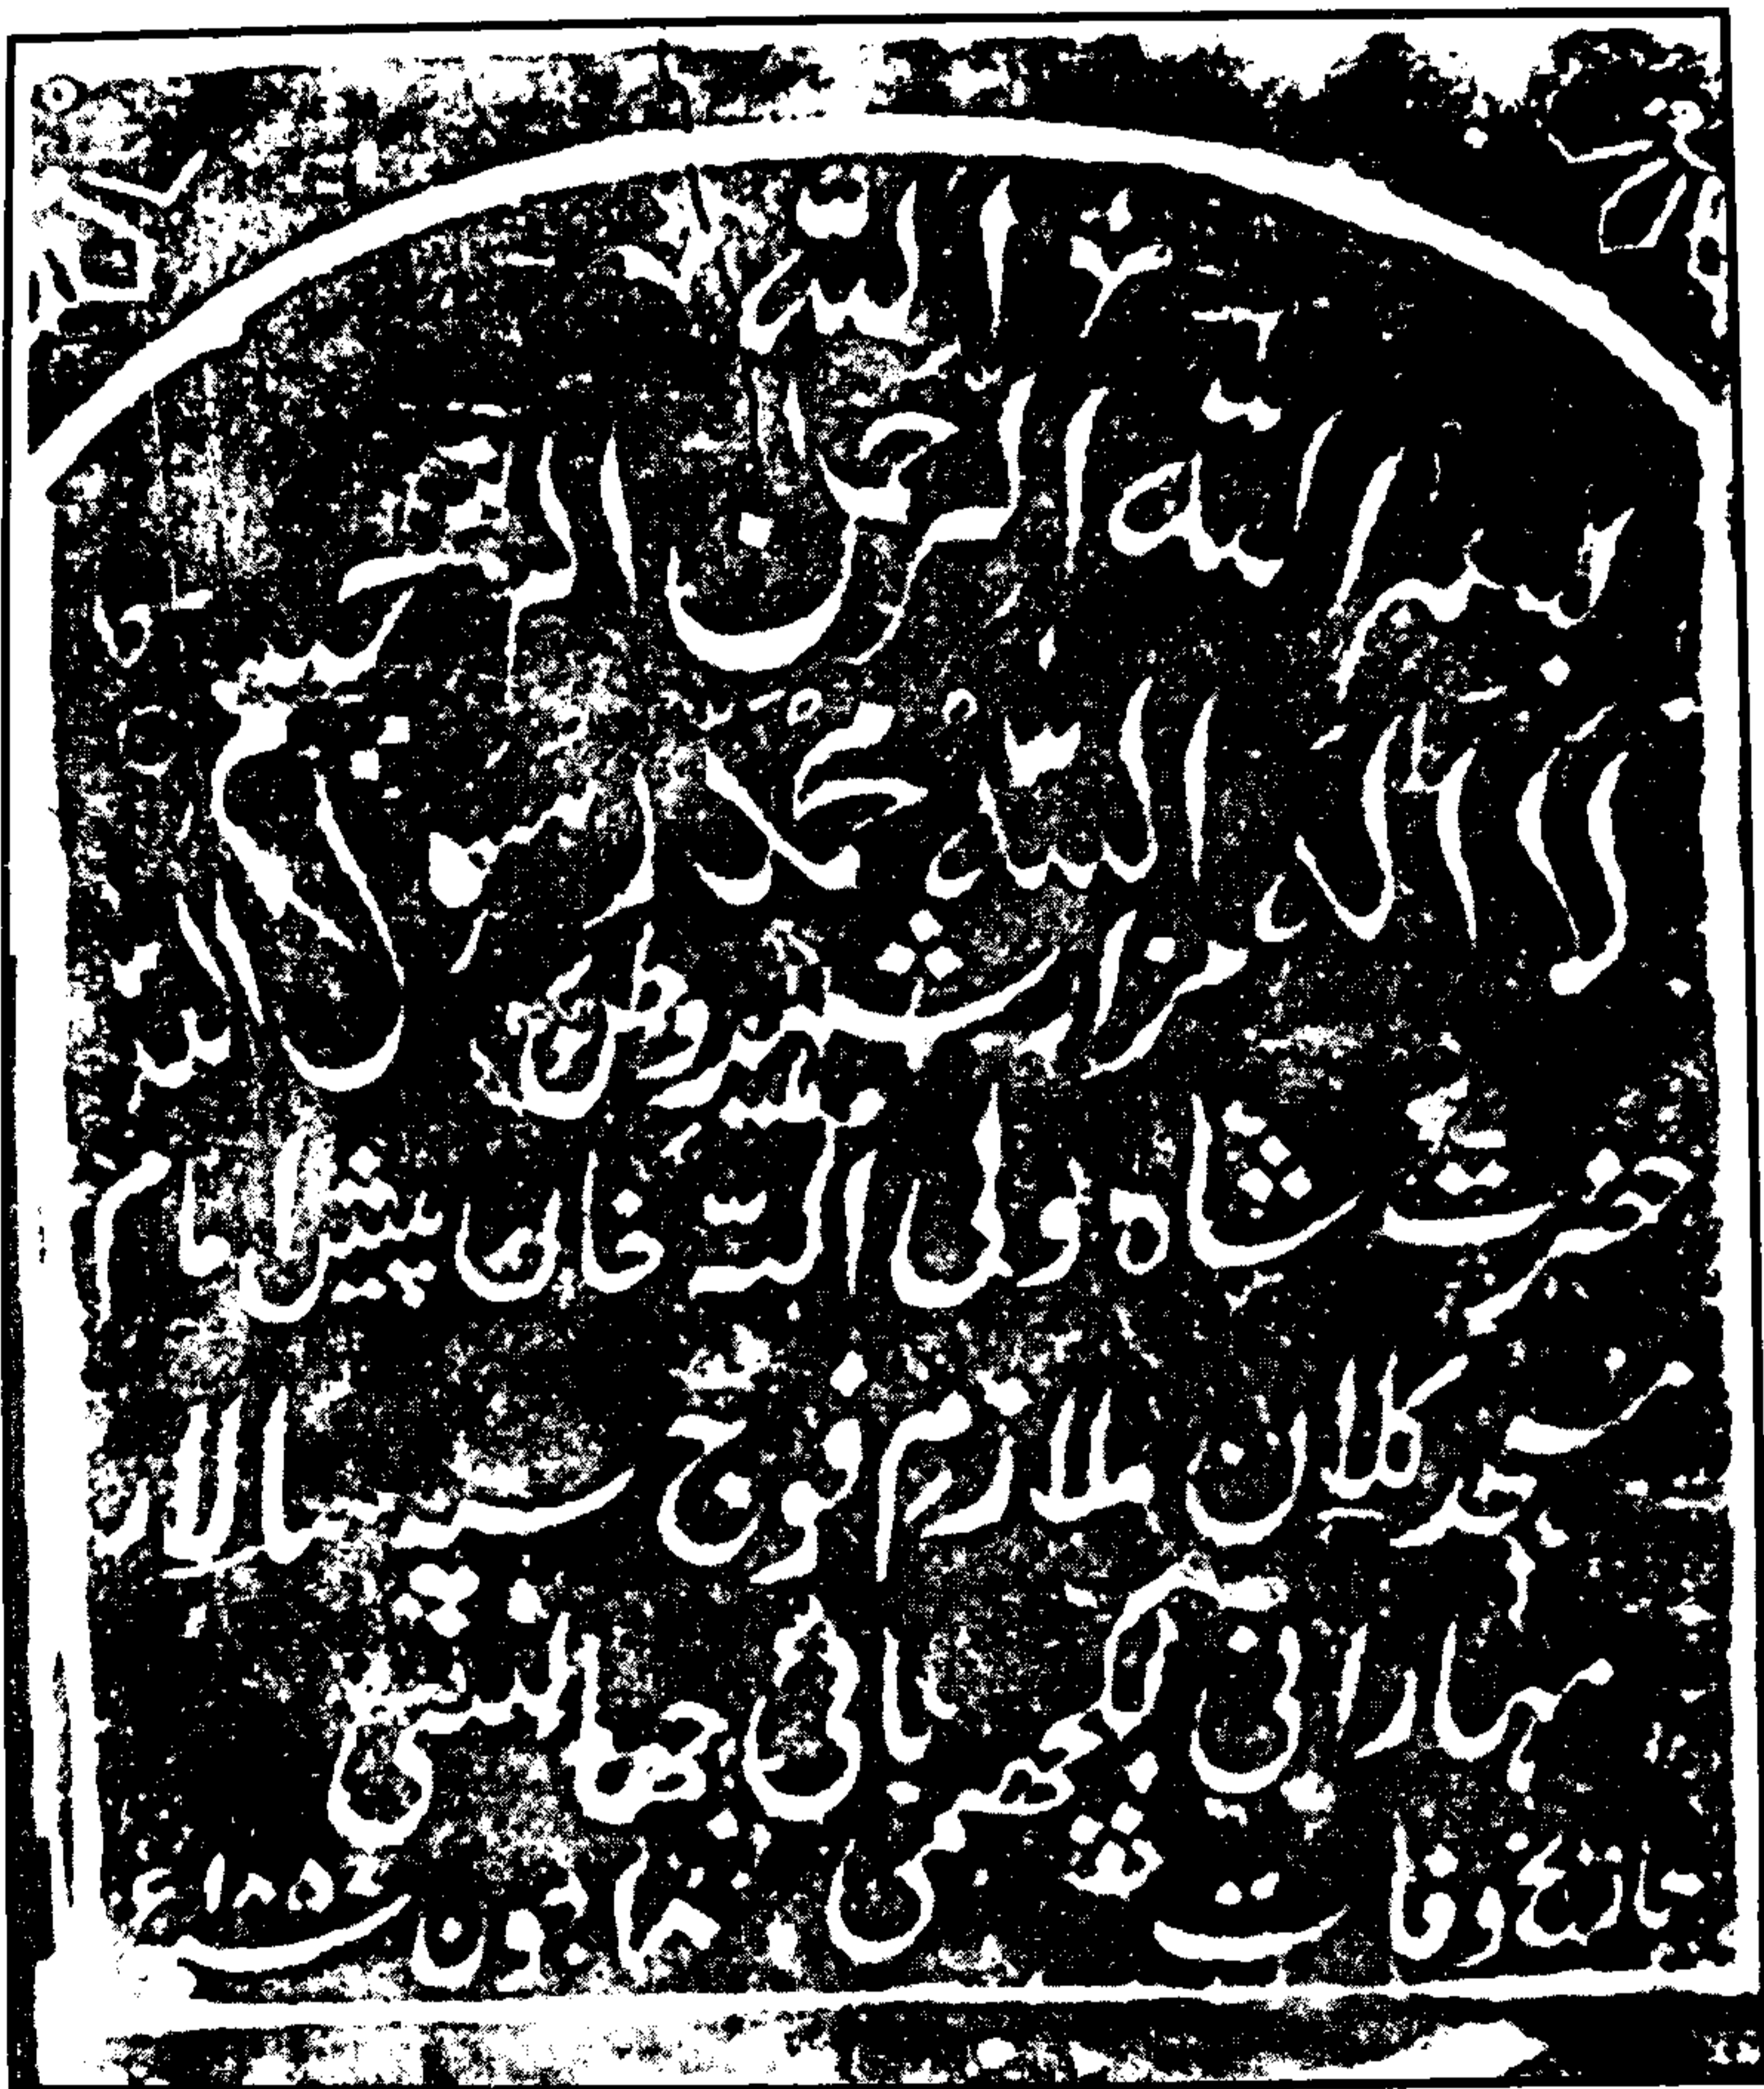 یا اللہ
بسم اللہ الرحمن الرحیم
لا الہ الا اللہ محمد رسول اللہ
مزار شہید وطن
حضرت شاہ ولی اللہ خاں پیش امام
مسجد کلاں ملازم فوج سپہ سالار
مہارانی لکچھمی بائی جھانسی
تاریخ وفات جون ۱۸۵۷ء